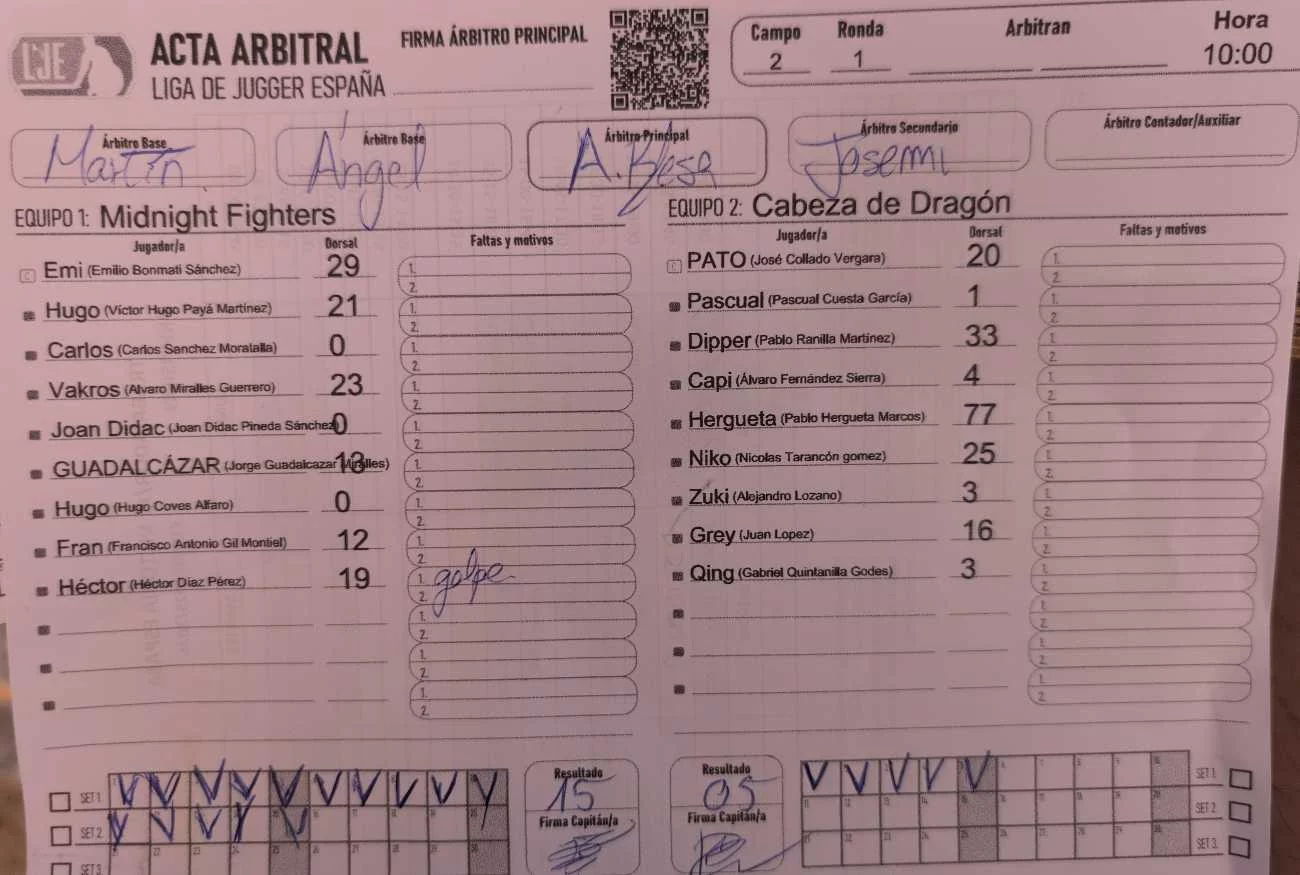 LJE
ACTA ARBITRAL
LIGA DE JUGGER ESPAÑA
FIRMA ÁRBITRO PRINCIPAL
Campo Ronda Arbitran Hora
2 1 10:00
Árbitro Base Árbitro Base Árbitro Principal Árbitro Secundario Árbitro Contador/Auxiliar
Martín Ángel A. Blesa Josemi
EQUIPO 1: Midnight Fighters
Jugador/a Dorsal Faltas y motivos
C Emi (Emilio Bonmati Sánchez) 29 1. 2.
Hugo (Víctor Hugo Payá Martínez) 21 1. 2.
Carlos (Carlos Sanchez Moratalla) 0 1. 2.
Vakros (Alvaro Miralles Guerrero) 23 1. 2.
Joan Didac (Joan Didac Pineda Sánchez) 0 1. 2.
GUADALCÁZAR (Jorge Guadalcazar Miralles) 13 1. 2.
Hugo (Hugo Coves Alfaro) 0 1. 2.
Fran (Francisco Antonio Gil Montiel) 12 1. 2.
Héctor (Héctor Díaz Pérez) 19 1. golpe 2.
1. 2.
1. 2.
1. 2.
EQUIPO 2: Cabeza de Dragón
Jugador/a Dorsal Faltas y motivos
C PATO (José Collado Vergara) 20 1. 2.
Pascual (Pascual Cuesta García) 1 1. 2.
Dipper (Pablo Ranilla Martínez) 33 1. 2.
Capi (Álvaro Fernández Sierra) 4 1. 2.
Hergueta (Pablo Hergueta Marcos) 77 1. 2.
Niko (Nicolas Tarancón gomez) 25 1. 2.
Zuki (Alejandro Lozano) 3 1. 2.
Grey (Juan Lopez) 16 1. 2.
Qing (Gabriel Quintanilla Godes) 3 1. 2.
1. 2.
1. 2.
1. 2.
SET 1.
SET 2.
SET 3.
21 22 23 24 25 26 27 28 29 30
Resultado
15
Firma Capitán/a
Resultado
05
Firma Capitán/a
SET 1.
11 12 13 14 15 16 17 18 19 20 SET 2.
21 22 23 24 25 26 27 28 29 30 SET 3.